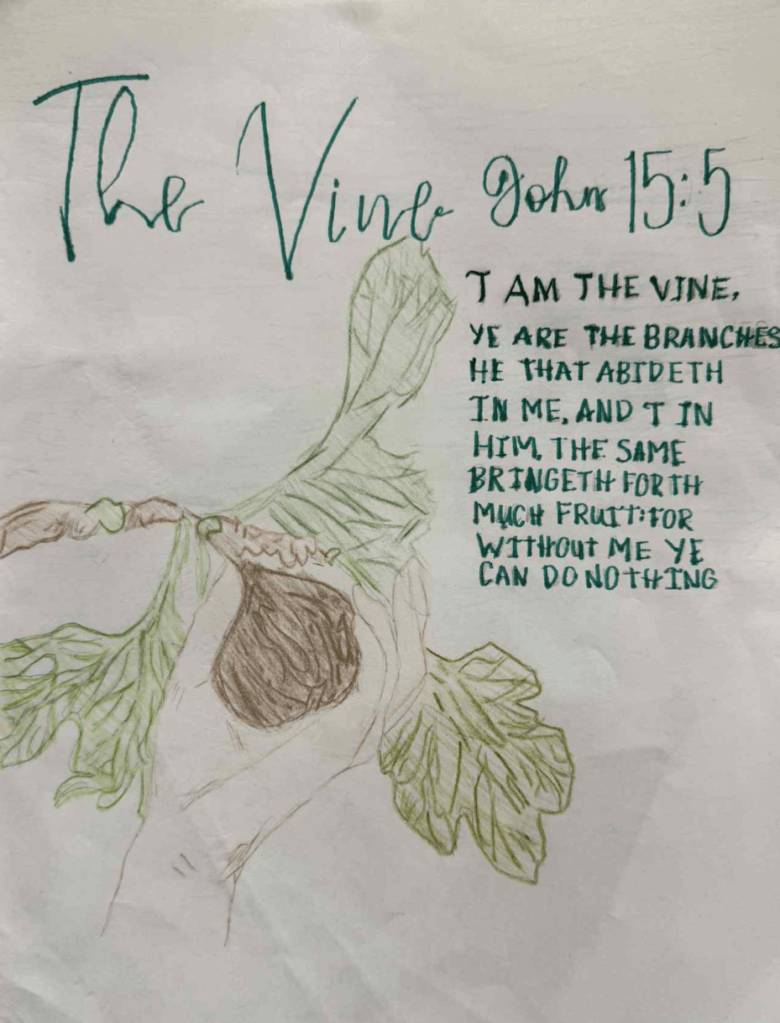 The Vine John 15:5
I AM THE VINE,
YE ARE THE BRANCHES
HE THAT ABIDETH
IN ME, AND I IN
HIM, THE SAME
BRINGETH FORTH
MUCH FRUIT: FOR
WITHOUT ME YE
CAN DO NOTHING